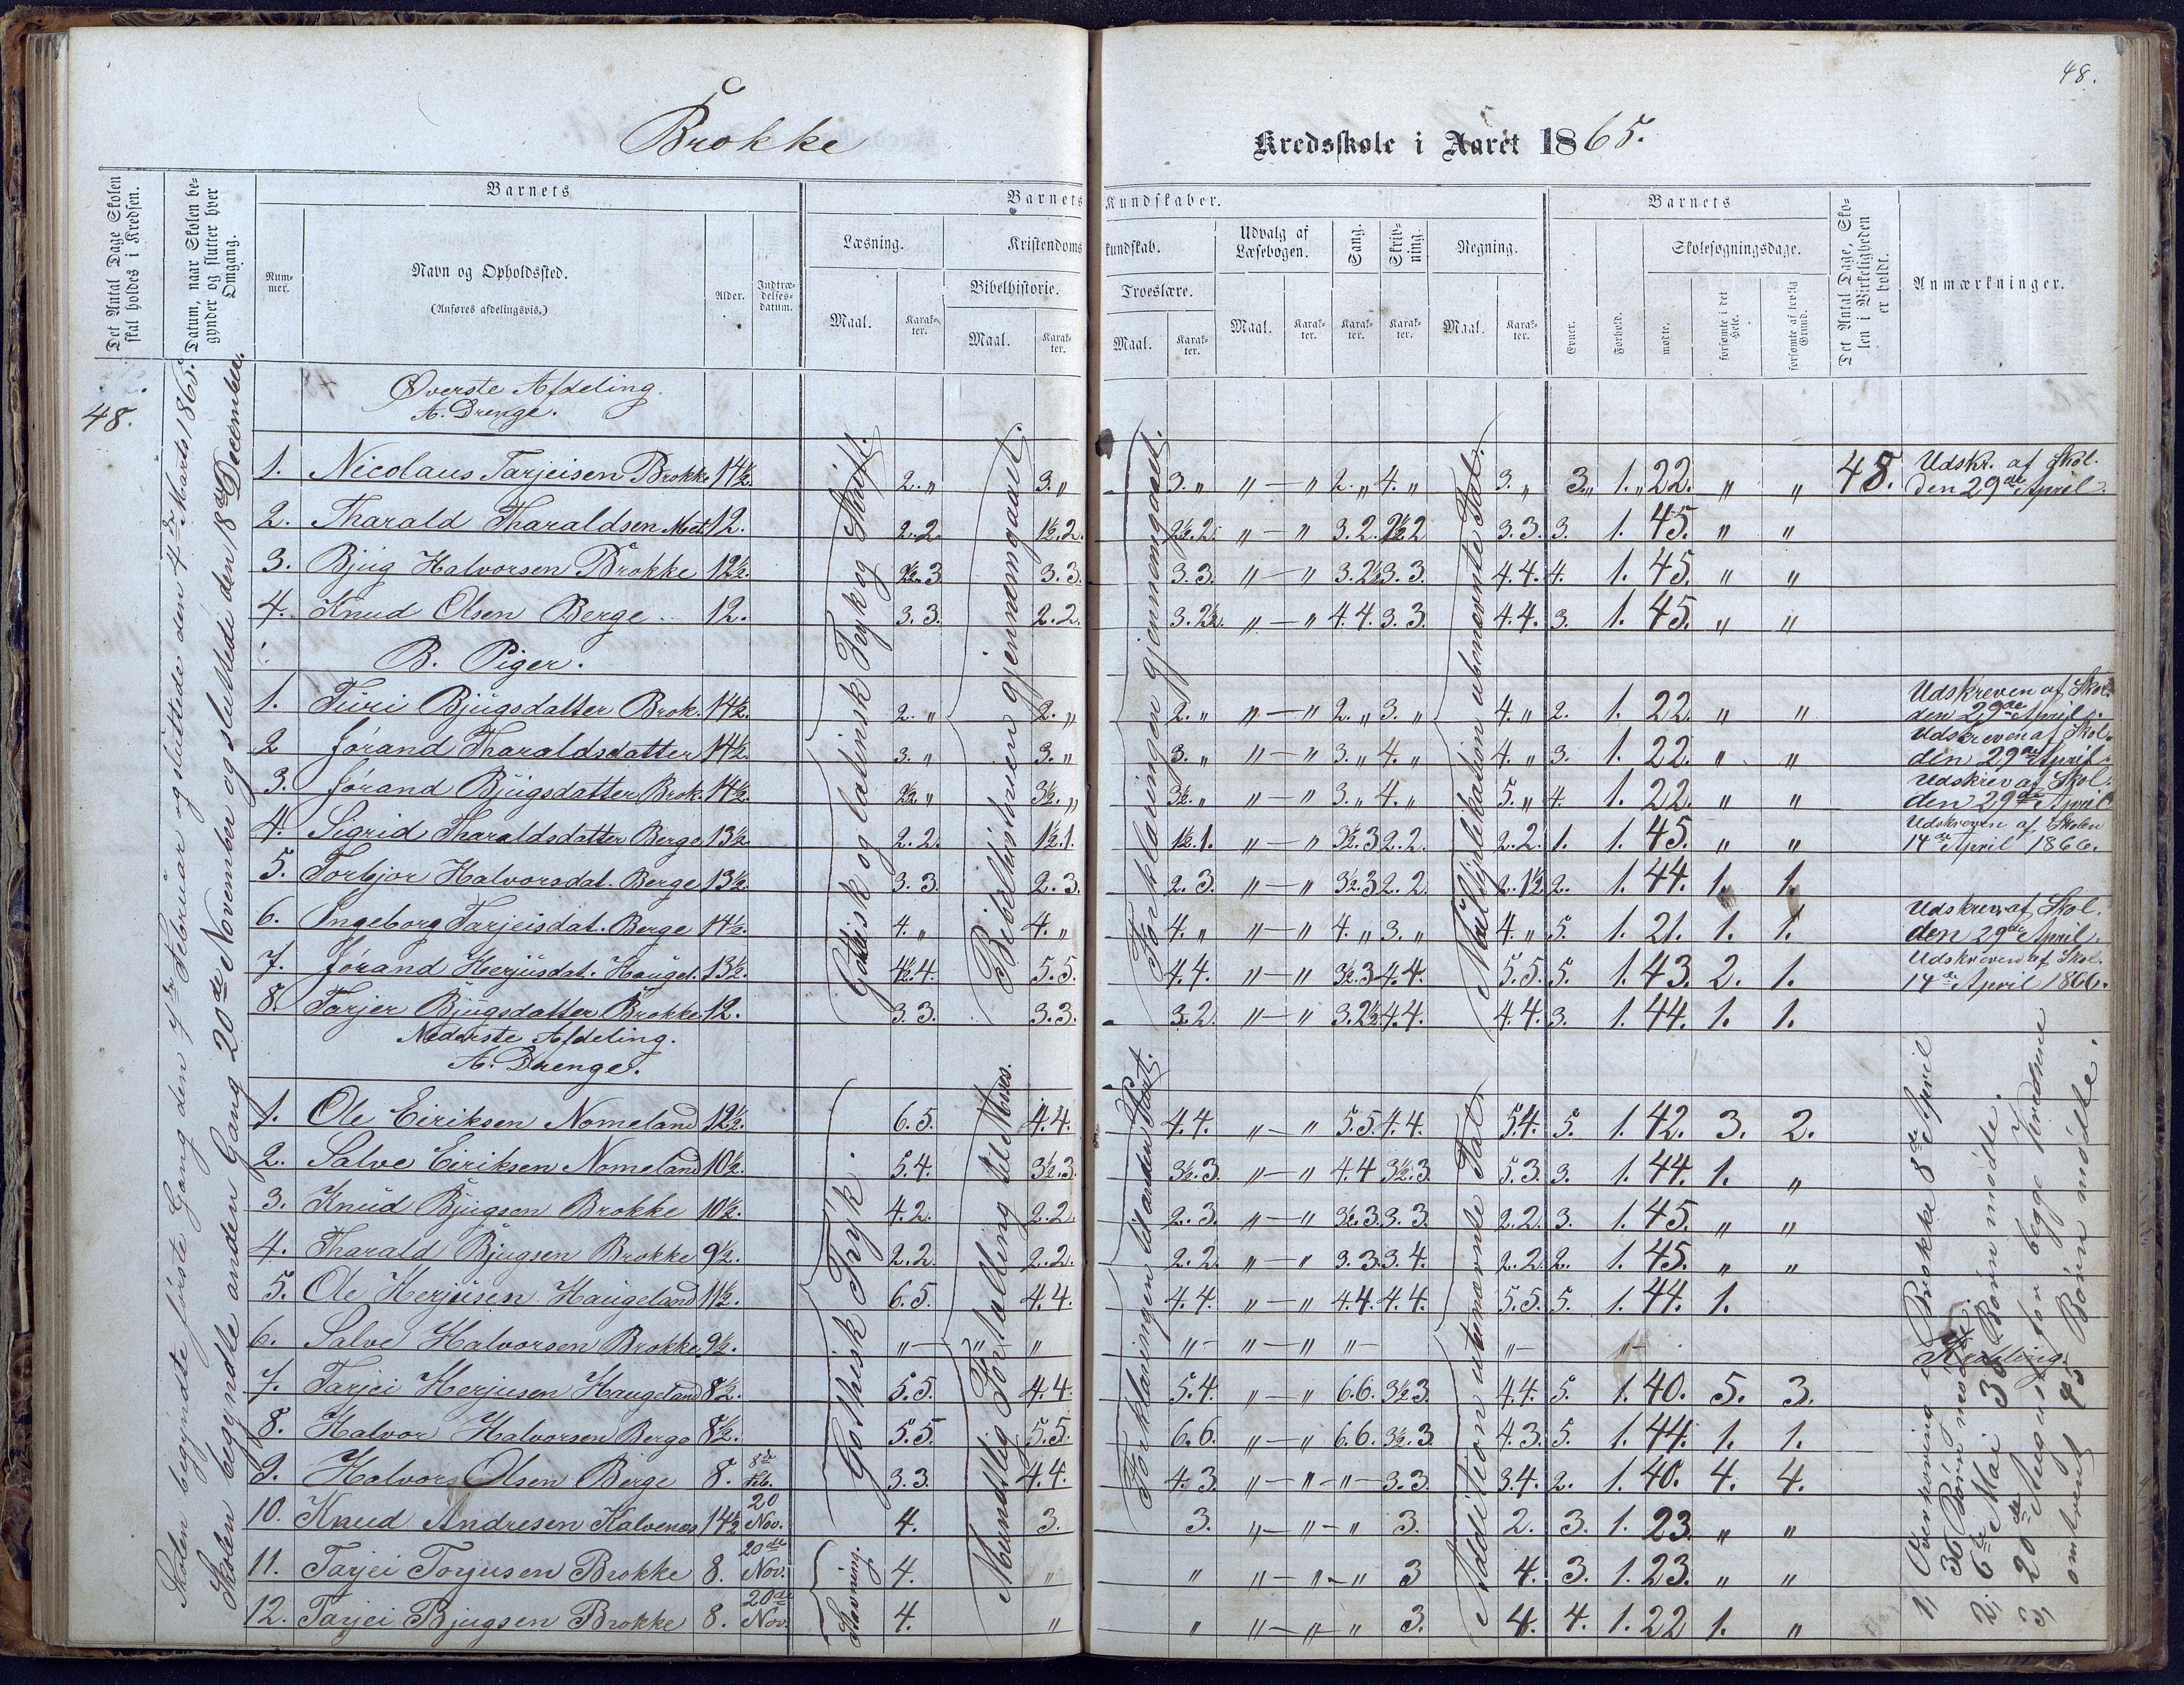 48.
Brokke
Kredsskole i Aaret 1865.
Det Antal Dage Skolen skal holdes i Kredsen.
Datum, naar Skolen begynder og slutter hver Omgang.
Barnets
Barnets Kundskaber.
Barnets
Det Antal Dage, Skolen i Virkeligheden er holdt.
Anmærkninger.
Nummer.
Navn og Opholdssted.
(Anføres afdelingsvis.)
Alder.
Indtrædelsesdatum.
Læsning.
Kristendomskundskab.
Udvalg af Læsebogen.
Sang.
Skrivning.
Regning.
Evner.
Forhold.
Skolesøgningsdage.
Bibelhistorie.
Troeslære.
Maal.
Karakter.
Maal.
Karakter.
Maal.
Karakter.
Maal.
Karakter.
Karakter.
Karakter.
Maal.
Karakter.
mødte.
forsømte i det Hele.
forsømte af lovlig Grund.
48.
Skolen begyndte første Gang den 7de Februar og sluttede den 4de Marts 1865.
Skolen begyndte anden Gang 20de November og sluttede den 18de December.
Øverste Afdeling
A. Drenge.
1. Nicolaus Tarjeisen Brokke 14½. 2. „ 3. „ 3. „ „ — „ 2. „ 4. „ 3. „ 3. „ 1. „ 22. „ „ 48. Udskr. af Skol. den 29de April.
2. Tharald Tharaldsen 12. 2.2. 1½.2. 2½.2. „ — „ 3.2. 2½2 3.3. 3. 1. 45. „ „
3. Bjug Halvorsen Brokke 12½. 2½.3 3.3. 3.3. „ — „ 3.2½ 3.3. 4.4. 4. 1. 45. „ „
4. Knud Olsen Berge 12. 3.3. 2.2. 3.2½. „ — „ 4.4. 3.3. 4.4. 3. 1. 45. „ „
B. Piger.
1. Turi Bjugsdatter Brok. 14½. 2. „ 2. „ 2. „ „ — „ 2. „ 3. „ 4. „ 2. 1. 22. „ „ Udskreven af Skol. den 29de April.
2 Jørand Tharaldsdatter 14½. 3. „ 3. „ 3. „ „ — „ 3. „ 4. „ 4. „ 3. 1. 22. „ „ Udskreven af Skol. den 29de April.
3. Jørand Bjugsdatter Brok. 14½. 2½. „ 3½. „ 3½. „ „ — „ 3. „ 4. „ 5. „ 4. 1. 22. „ „ Udskrev af Skol. den 29de April
4. Sigrid Tharaldsdatter Berge 13½. 2.2. 1½.1. 1½.1. „ — „ 3½.3 2.2. 2.2. 1. 1. 45. „ „ Udskreven af Skolen 14de April 1866.
5. Torbjor Halvorsdat. Berge 13½. 3.3. 2.3. 2.3. „ — „ 3½.3 2.2. 2.1½ 2. 1. 44. 1. 1.
6. Ingeborg Tarjeisdat. Berge 14½. 4. „ 4. „ 4. „ „ — „ 4. „ 3. „ 4. „ 5. 1. 21. 1. 1. Udskrev. af Skol. den 29de April.
7. Jørand Herjusdat. Haugel. 13½. 4½.4. 5.5. 4.4. „ — „ 3½.3 4.4. 5.5. 5. 1. 43. 2. 1. Udskreven af Skol. 14de April 1866.
8. Tarjer Bjugsdatter Brokke 12. 3.3. 3.3. 3.2. „ — „ 3.2½ 4.4. 4.4. 3. 1. 44. 1. 1.
Gothisk og latinsk Tryk og Skrift.
Bibelhistorien gjennemgaaet.
Forklaringen gjennemgaaet.
Multiplikation i ubenævnte Tal.
Nederste Afdeling.
A. Drenge.
1. Ole Eiriksen Nomeland 12½. 6.5. 4.4. 4.4. „ — „ 5.5 4.4. 5.4. 5. 1. 42. 3. 2.
2. Salve Eiriksen Nomeland 10½. 5.4. 3½.3. 3½.3. „ — „ 4.4 3½.3 5.3. 3. 1. 44. 1. „
3. Knud Bjugsen Brokke 10½. 4.2. 2.2. 2.3. „ — „ 3½.3. 3.3. 2.2. 3. 1. 45. „ „
4. Tharald Bjugsen Brokke 9½. 2.2. 2.2. 2.2. „ — „ 3.3. 3.4. 2.2. 2. 1. 45. „ „
5. Ole Herjusen Haugeland 11½. 6.5. 4.4. 4.4. „ — „ 4.4. 4.4. 5.5. 5. 1. 44. 1.
6. Salve Halvorsen Brokke 9½. „ — „ „ „ — „ — „ „ — „ — „ —
7. Tarjei Herjusen Haugeland 8½. 5.5. 4.4. 5.4. „ — „ 6.6. 3½.3 4.4. 5. 1. 40. 5. 3.
8. Halvor Halvorsen Berge 8½. 5.5. 5.5. 6.6. „ — „ 6.6. 3½.3. 4.3. 5. 1. 44. 1. 1.
9. Halvor Olsen Berge 8. 8de Feb. 3.3. 4.4. 4.3. „ — „ — „ — 3.3. 3.4. 2. 1. 40. 4. 4.
10. Knud Andresen Kalvenæs 14½ 20 Nov. 4. 3. 3. „ — „ — „ 3. 2. 3. 1. 23. „ „
11. Tarjei Torjusen Brokke 8. 20de Nov. 4. „ „ „ — „ — „ 3 4. 3. 1. 23. „ „
12. Tarjei Bjugsen Brokke 8. 20de Nov. 4. „ „ „ — „ — „ 3. 4. 4. 1. 22 1. „
Gothisk Tryk.
Stavning.
Mundtlig Fortælling til Moses.
Forklaringen til anden Part.
Addition i ubenævnte Tal.
1, Overhøring i Brokke 8de April
36 Børn mødte.
2, 6te Mai 36 Børn mødte.
3, 20de August for begge Kredsene
omtrent 45 Børn mødte.